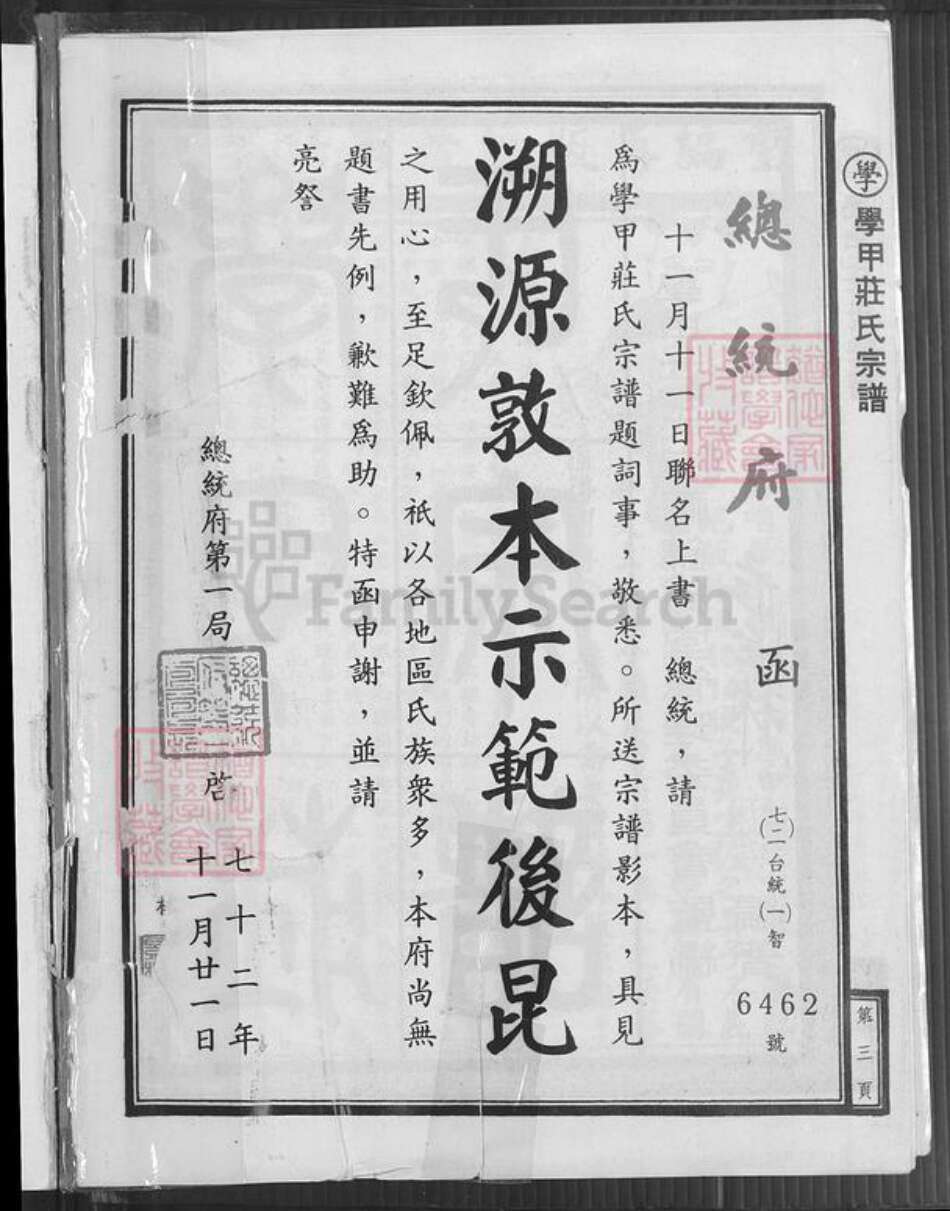 學 學甲莊氏宗譜
第三頁
總統府 函
(七二)台統(一)智 6462 號
十一月十一日聯名上書 總統，請
為學甲莊氏宗譜題詞事，敬悉。所送宗譜影本，具見
溯源敦本示範後昆
之用心，至足欽佩，祇以各地區氏族衆多，本府尚無
題書先例，歉難為助。特函申謝，並請
亮詧
總統府第一局 啓
七十二年
十一月廿一日
FamilySearch